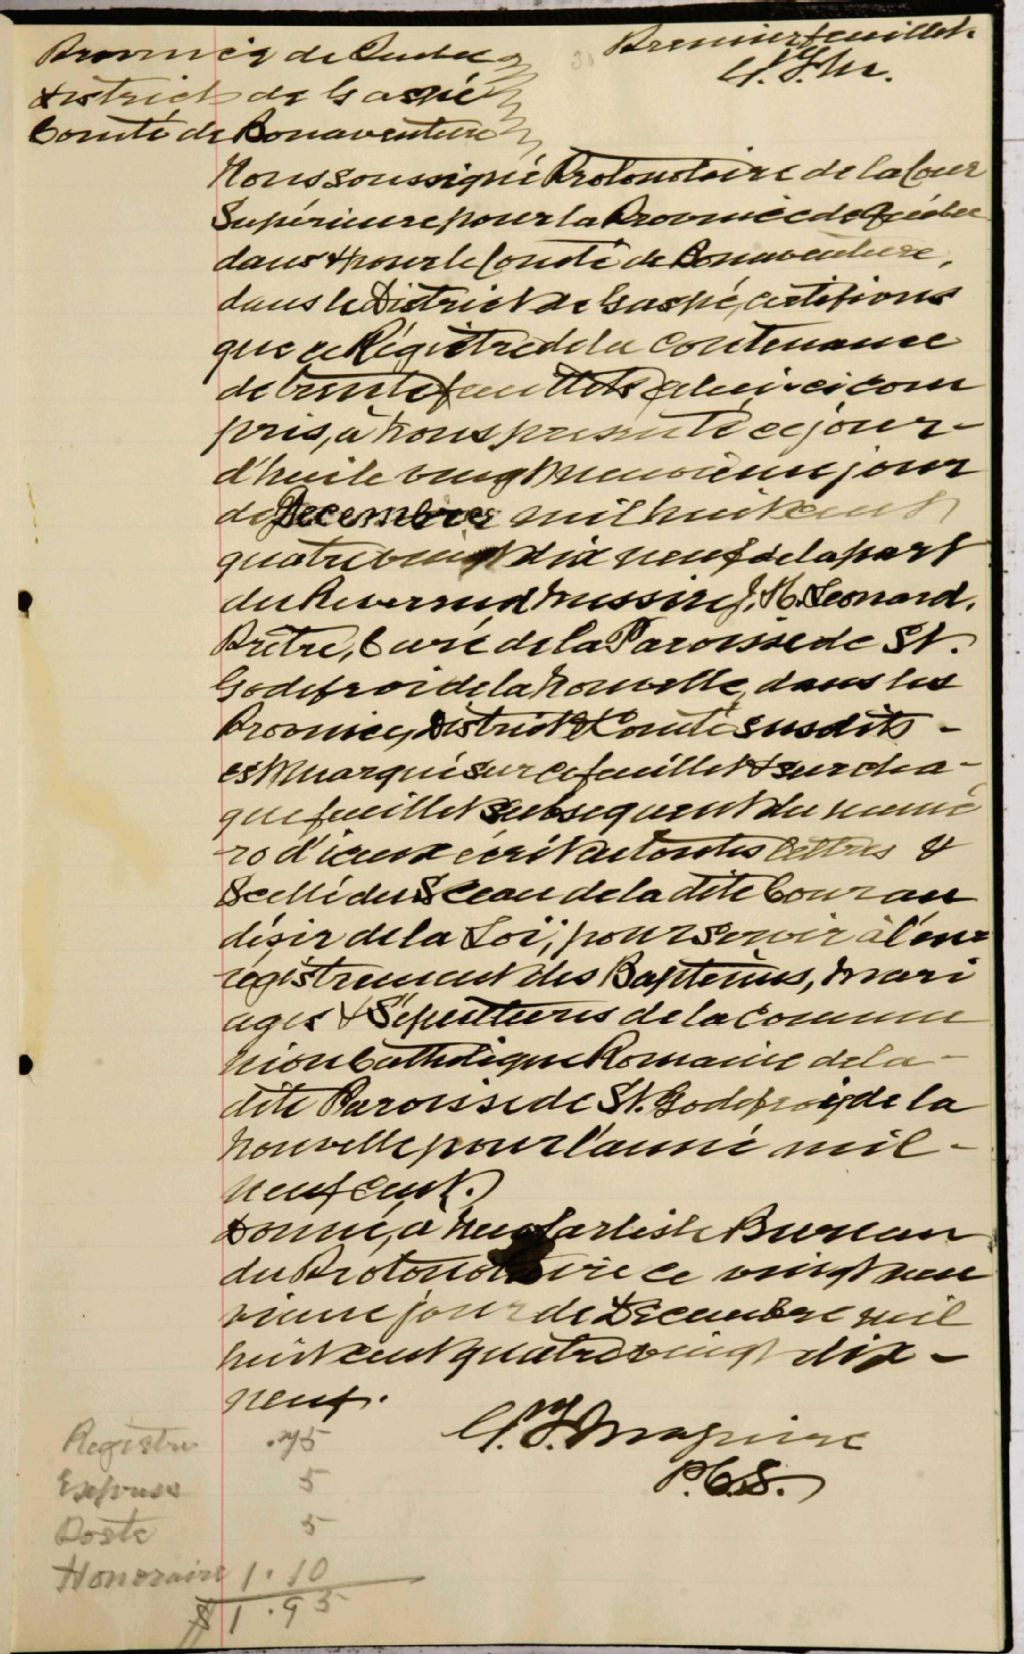 Province de Quebec
District de Gaspé
Comté de Bonaventure
Premier feuillet.
Nous soussigné Protonotaire de la Cour
Supérieure pour la Province de Québec
dans & pour le Comté de Bonaventure,
dans le District de Gaspé, certifions
que ce Régistre de la contenance
de trente feuillets celui-ci com
pris, à nous presenté ce jour-
d'hui le vingt neuvième jour
de Decembre mil huit cent
quatre vingt dix neuf de la part
du Reverend Messire J. H. Leonard,
Prêtre, Curé de la Paroisse de St.
Godefroi de la Nouvelle, dans les
Province, District & Comté susdits -
est marqué sur ce feuillet & sur cha-
que feuillet subsequent du numé
ro d'iceux écrit en toutes lettres &
Scellé du Sceau de la dite Cour au
désir de la Loi, pour servir à l'en-
régistrement des Baptêmes, Mari
ages & Sépultures de la Commu
nion Catholique Romaine de la -
dite Paroisse de St. Godefroi de la
Nouvelle pour l'année mil -
neuf cent.
Donné, à New Carlisle Bureau
du Protonotaire ce vingt neu
vieme jour de Décembre mil
huit cent quatre vingt dix -
neuf.
Maguire
P.C.S.
Registre .75
Express 5
Poste 5
Honoraire 1.10
$1.95